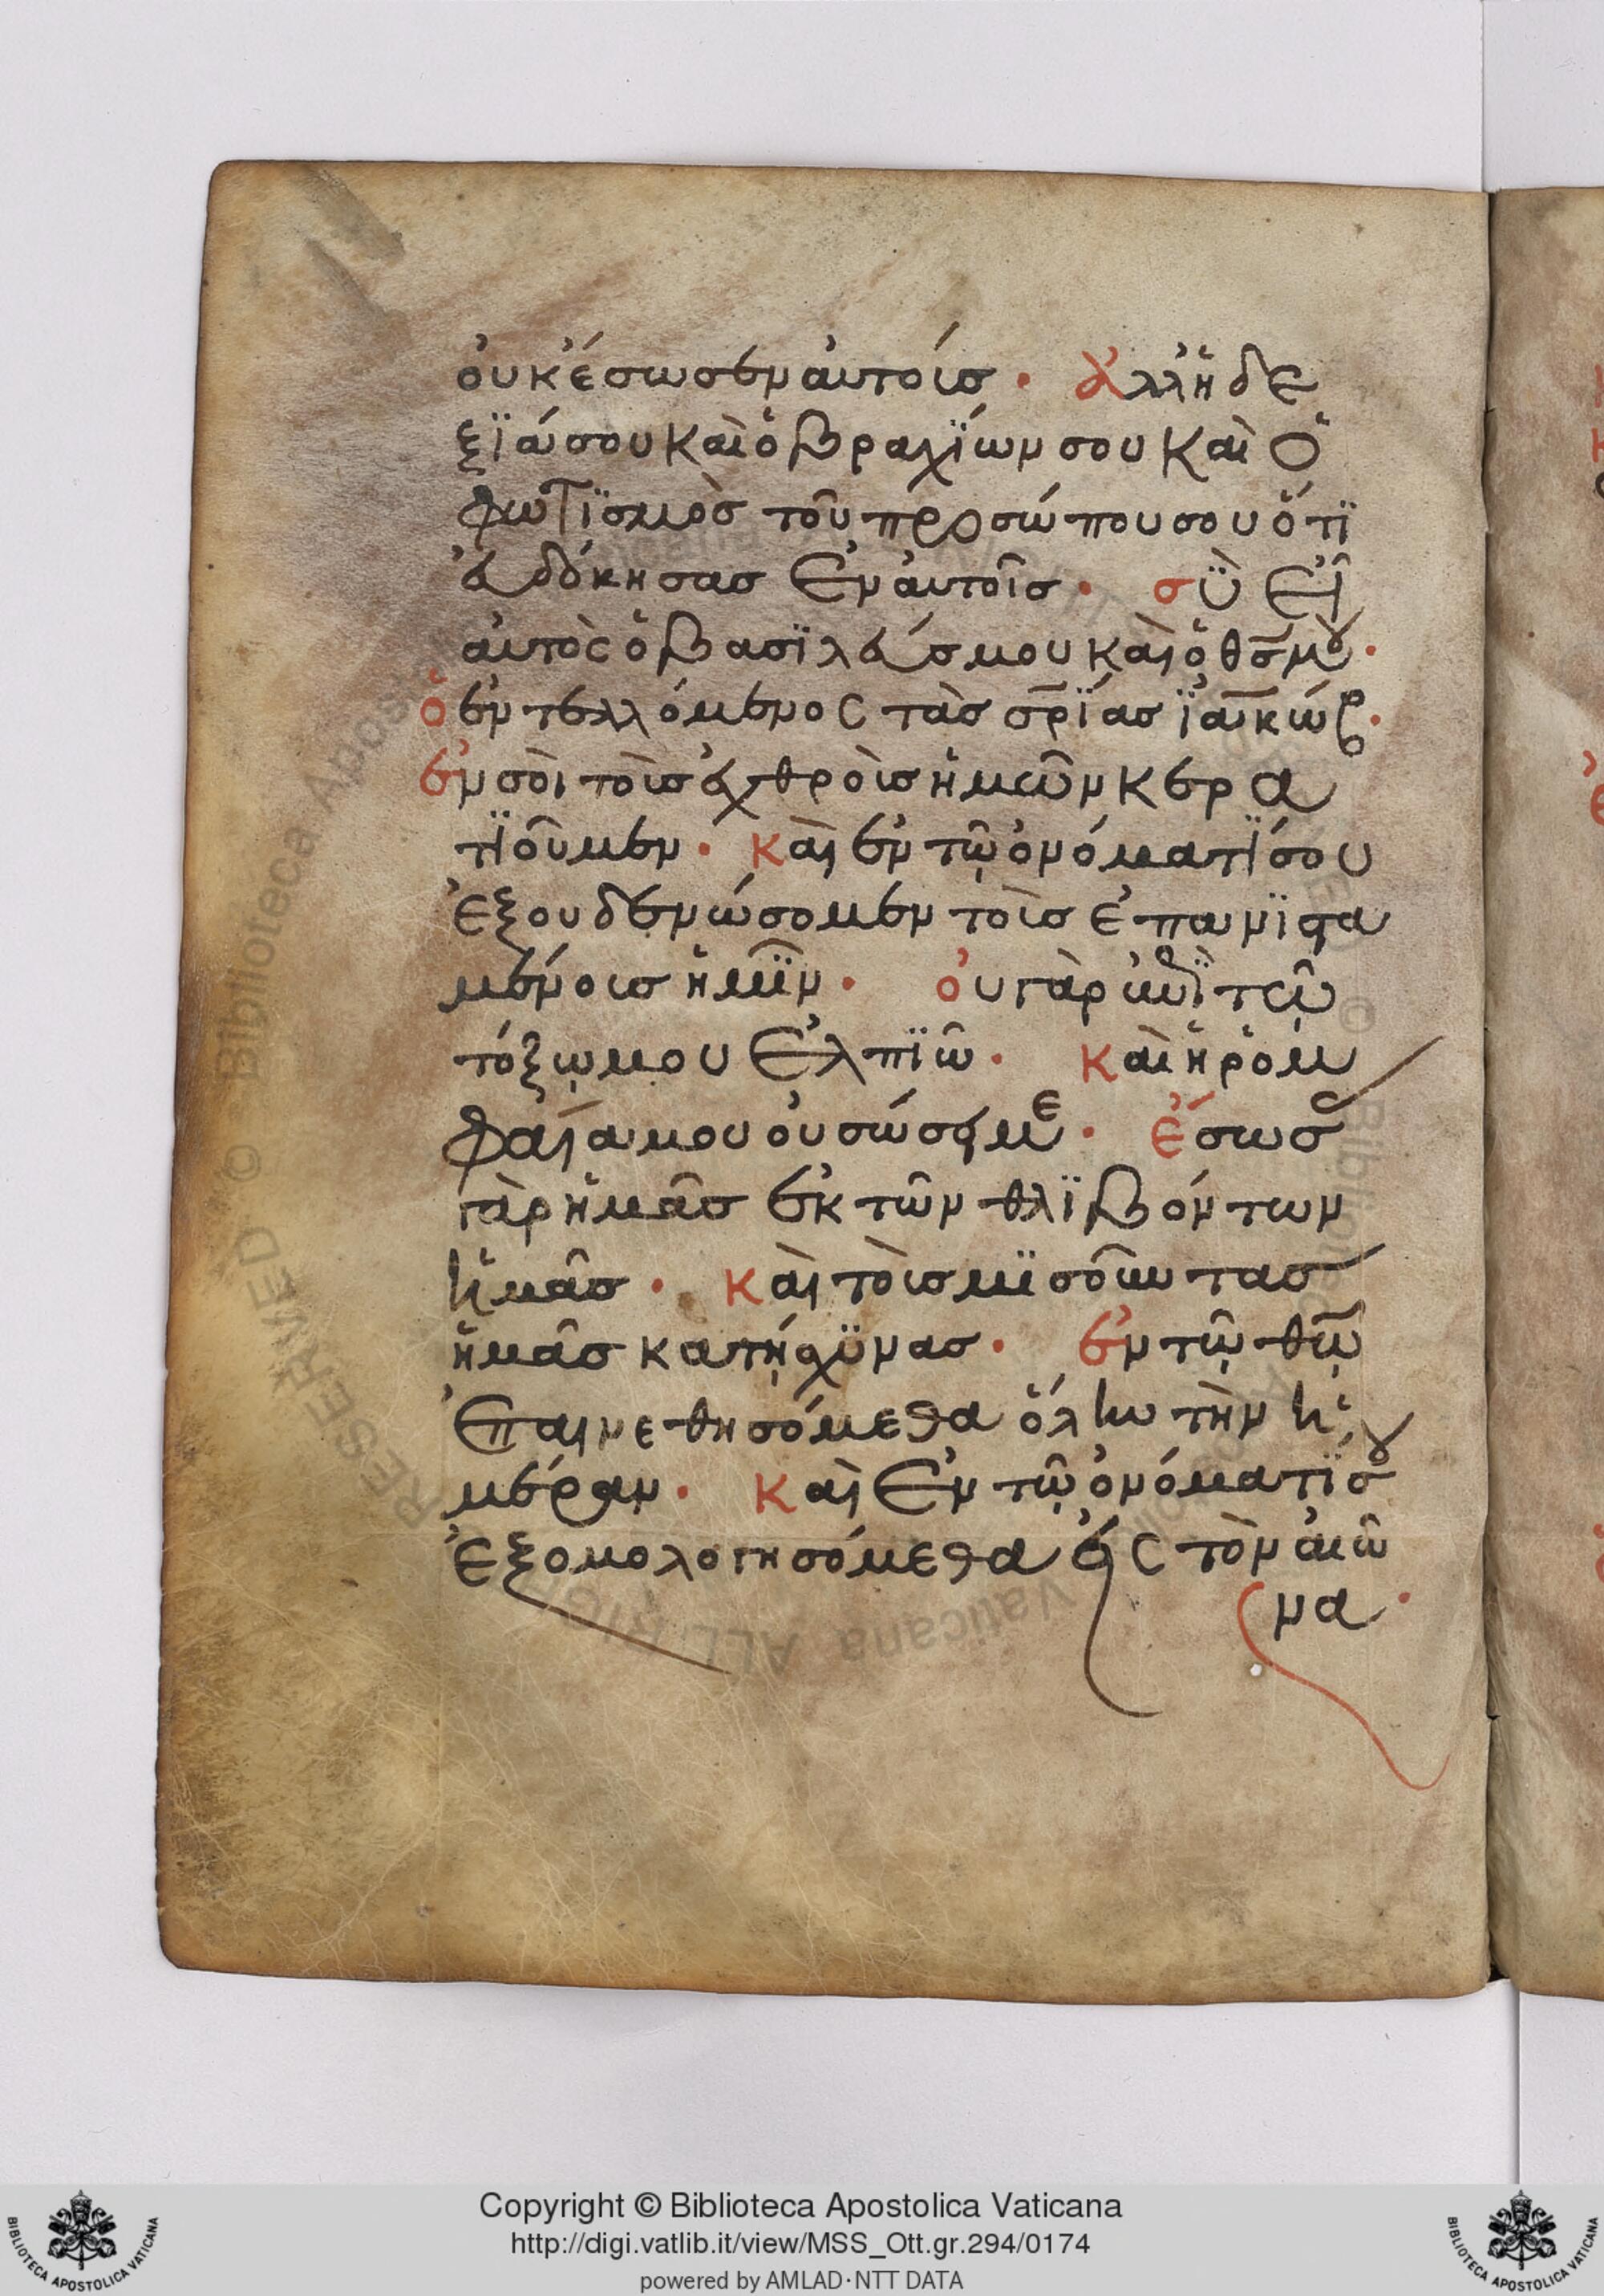 οὐκ ἔσωσεν αὐτοίσ · ἀλλ ἡ δε
ξϊά σου καὶ ὁ βραχϊών σου καὶ ὁ
φωτϊσμὸσ τοῦ προσώπου σου ὅτϊ
ἐυδόκησασ ἐν αὐτοῖσ · σϋ εἶ
αὐτὸς ὁ βασϊλεύσ μου καὶ ὁ θ̅σ̅ μου ·
ὁ ἐντελλόμενος τὰσ σ̅ρ̅ΐασ ϊ̓ακώβ ·
ἐν σοὶ τοὶσ ἐχθροὶσ ἡμῶν κερα
τϊοῦμεν · καὶ ἐν τῶ ὀνόματΐ σου
ἐξουδενώσομεν τοὶσ ἐπανϊστα
μένοισ ἡμῖν · οὐ γὰρ ἐπὶ τῶ
τόξω μου ἐλπϊῶ · καὶ ἡ ρομ
φαία μου οὐ σώσει με · ἔσωσασ
γὰρ ἡμᾶσ ἐκ τῶν θλϊβόντων
ἡμᾶσ · καὶ τοὶσ μϊσοῦντασ
ἡμᾶσ κατήσχϋνασ · ἐν τῶ θ̅ω̅
ἐπαινεθησόμεθα ὅλην τὴν ἡ
μέραν · καὶ ἐν τῶ ὀνόματΐ σου
ἐξομολογησόμεθα εἰς τὸν αἰῶ
να ·
Copyright © Biblioteca Apostolica Vaticana
http://digi.vatlib.it/view/MSS_Ott.gr.294/0174
powered by AMLAD·NTT DATA
BIBLIOTECA APOSTOLICA VATICANA
BIBLIOTECA APOSTOLICA VATICANA